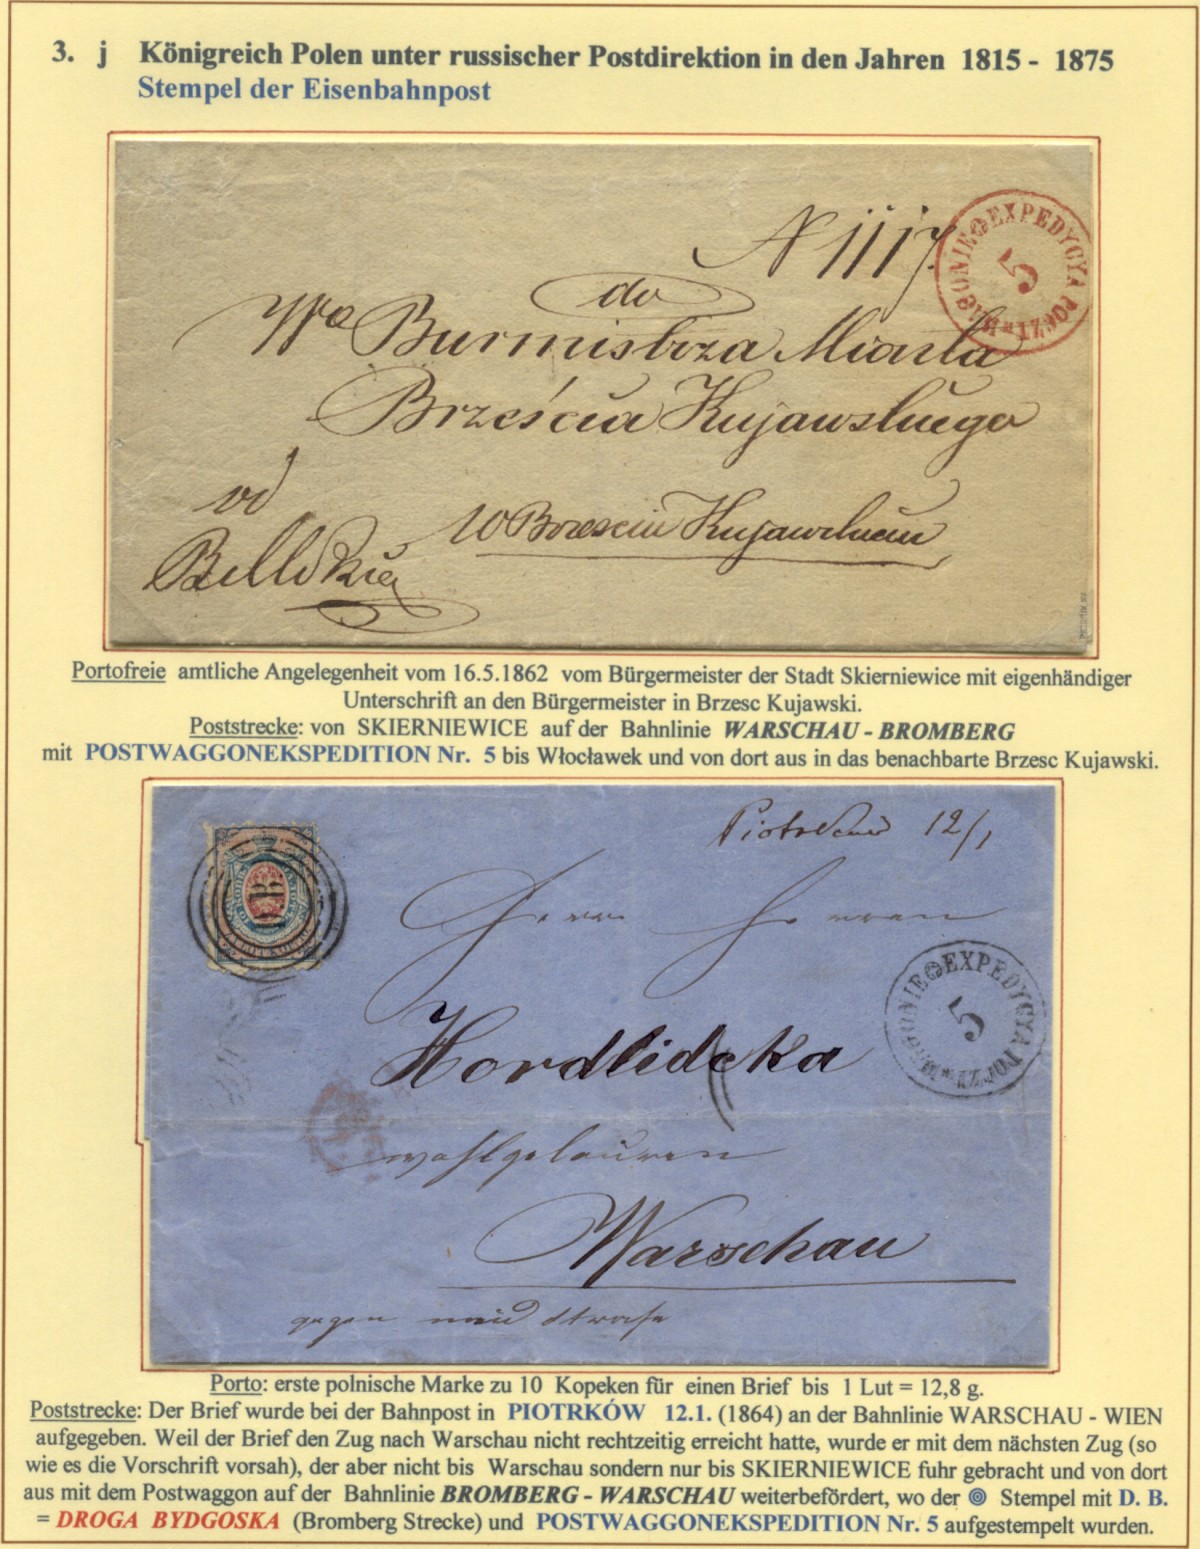 3. j Königreich Polen unter russischer Postdirektion in den Jahren 1815 - 1875
Stempel der Eisenbahnpost
N 1117.
EXPEDYCYA POCZT W WAGONIE
5
do
Wo Burmistrza Miasta
Brześcia Kujawskiego
od
w Brzesciu Kujawskiem
Portofreie amtliche Angelegenheit vom 16.5.1862 vom Bürgermeister der Stadt Skierniewice mit eigenhändiger
Unterschrift an den Bürgermeister in Brzesc Kujawski.
Poststrecke: von SKIERNIEWICE auf der Bahnlinie WARSCHAU - BROMBERG
mit POSTWAGGONEKSPEDITION Nr. 5 bis Włocławek und von dort aus in das benachbarte Brzesc Kujawski.
Piotrków 12/1
D.B.
Herrn Herren
EXPEDYCYA POCZT W WAGONIE
5
Hordlidcka
Warschau
Porto: erste polnische Marke zu 10 Kopeken für einen Brief bis 1 Lut = 12,8 g.
Poststrecke: Der Brief wurde bei der Bahnpost in PIOTRKÓW 12.1. (1864) an der Bahnlinie WARSCHAU - WIEN
aufgegeben. Weil der Brief den Zug nach Warschau nicht rechtzeitig erreicht hatte, wurde er mit dem nächsten Zug (so
wie es die Vorschrift vorsah), der aber nicht bis Warschau sondern nur bis SKIERNIEWICE fuhr gebracht und von dort
aus mit dem Postwaggon auf der Bahnlinie BROMBERG - WARSCHAU weiterbefördert, wo der Stempel mit D. B.
= DROGA BYDGOSKA (Bromberg Strecke) und POSTWAGGONEKSPEDITION Nr. 5 aufgestempelt wurden.